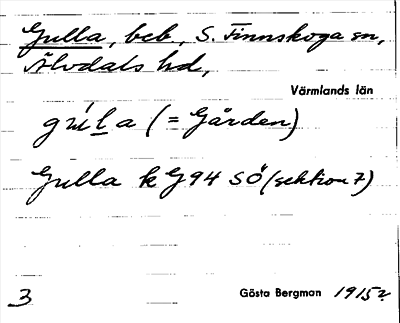 Gulla, beb, S. Finnskoga sn,
Älvdals hd,
Värmlands län
gúla (= Gården)
Gulla k G94 SÖ (sektion 7)
3 Gösta Bergman 1915